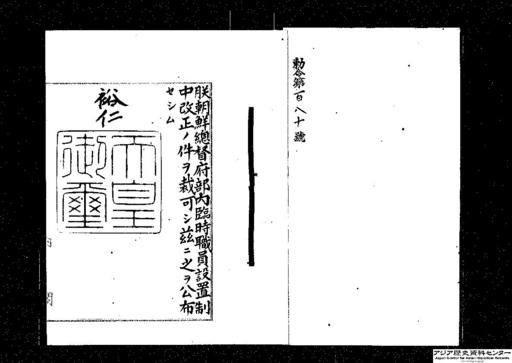 勅令第一百八十號
朕朝鮮總督府部內臨時職員設置制
中改正ノ件ヲ裁可シ茲ニ之ヲ公布
セシム
裕仁
天皇
御璽
内閣
アジア歴史資料センター
Japan Center for Asian Historical Records